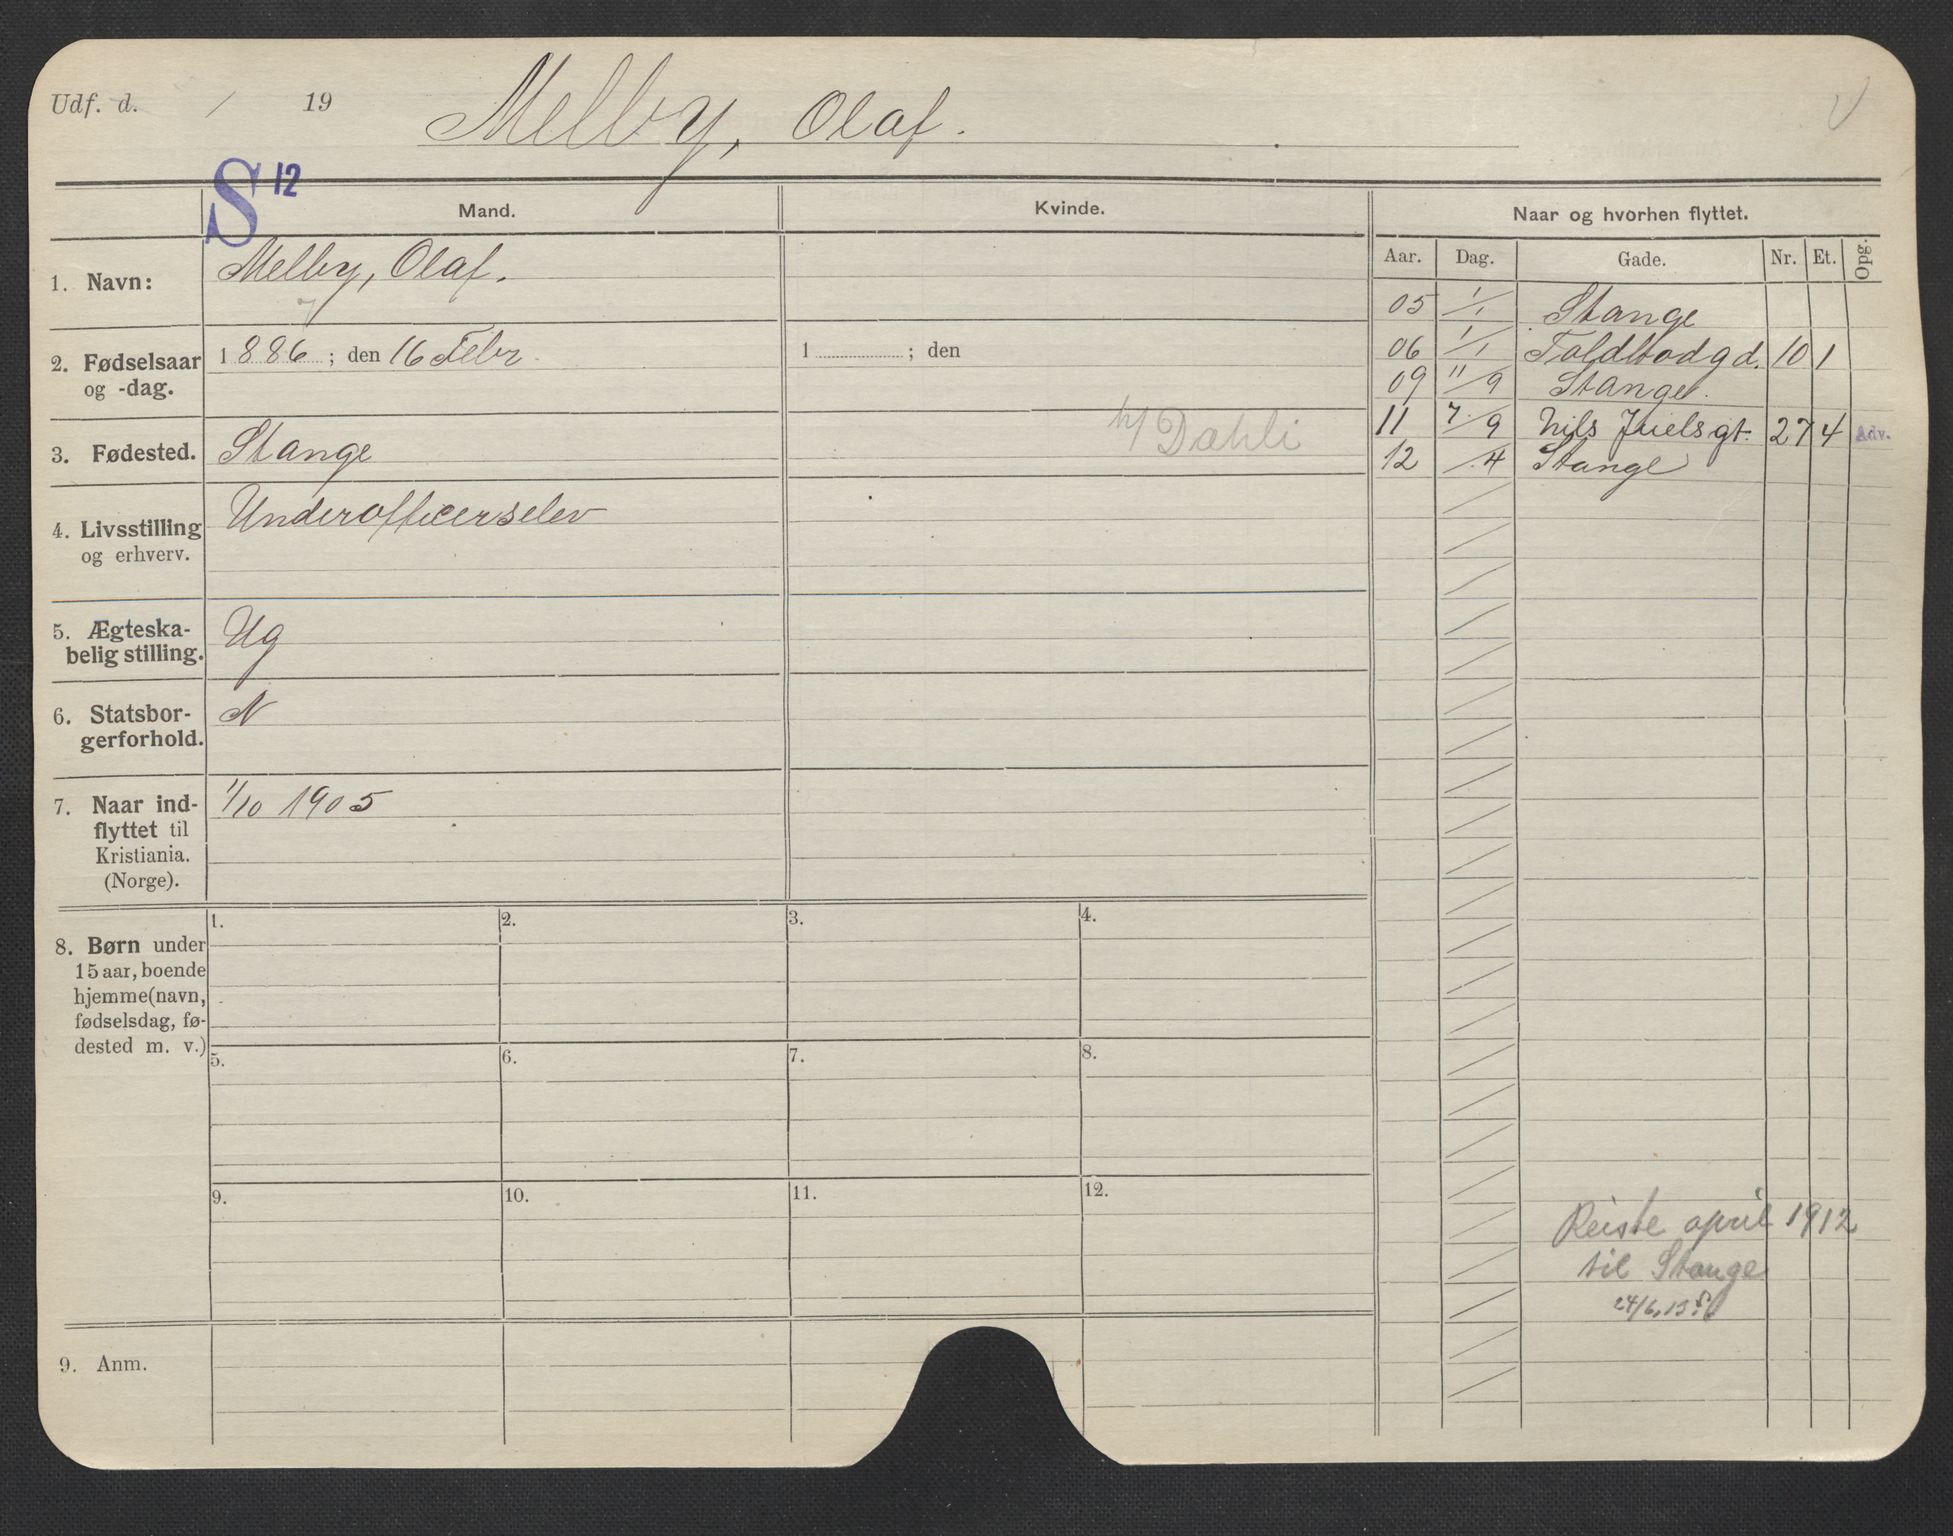 Udf. d. / 19 Melby, Olaf.
S 12
Mand. Kvinde. Naar og hvorhen flyttet.
Aar. Dag. Gade. Nr. Et. Opg.
1. Navn: Melby, Olaf.
2. Fødselsaar og -dag. 1886; den 16 Febr. 1 ; den
3. Fødested. Stange
h/ Dæhli
4. Livsstilling og erhverv. Underofficerselev
5. Ægteska-
belig stilling. Ug
6. Statsbor-
gerforhold. N
7. Naar ind-
flyttet til
Kristiania.
(Norge). 1/10 1905
05 1/1 Stange
06 1/1 Toldbodgd. 10 1
09 11/9 Stange.
11 7/9 Nils Juels gt. 27 4 Adv.
12 /4 Stange
8. Børn under
15 aar, boende
hjemme (navn,
fødselsdag, fø-
dested m. v.)
1. 2. 3. 4.
5. 6. 7. 8.
9. 10. 11. 12.
Reiste april 1912
til Stange
24/6.13
9. Anm.